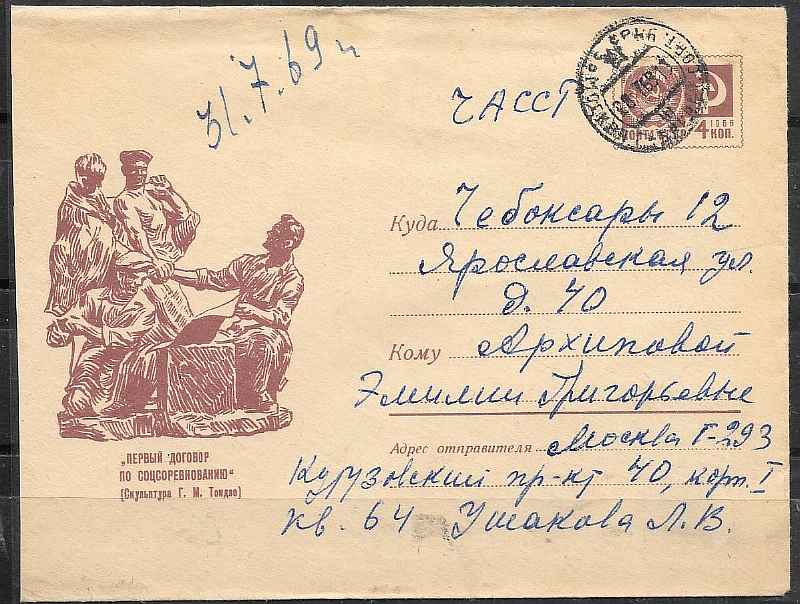 31.7.69 г
ЧАССР
4 1966
КОП.
Куда Чебоксары 12
Ярославская ул.
д. 40
Кому Архиповой
Эмилии Григорьевне
Адрес отправителя Москва Г-293
пр-кт 40, корп. I
кв. 64 Ушакова Л.В.
„ПЕРВЫЙ ДОГОВОР
ПО СОЦСОРЕВНОВАНИЮ“
(Скульптура Г. М. Тоидзе)